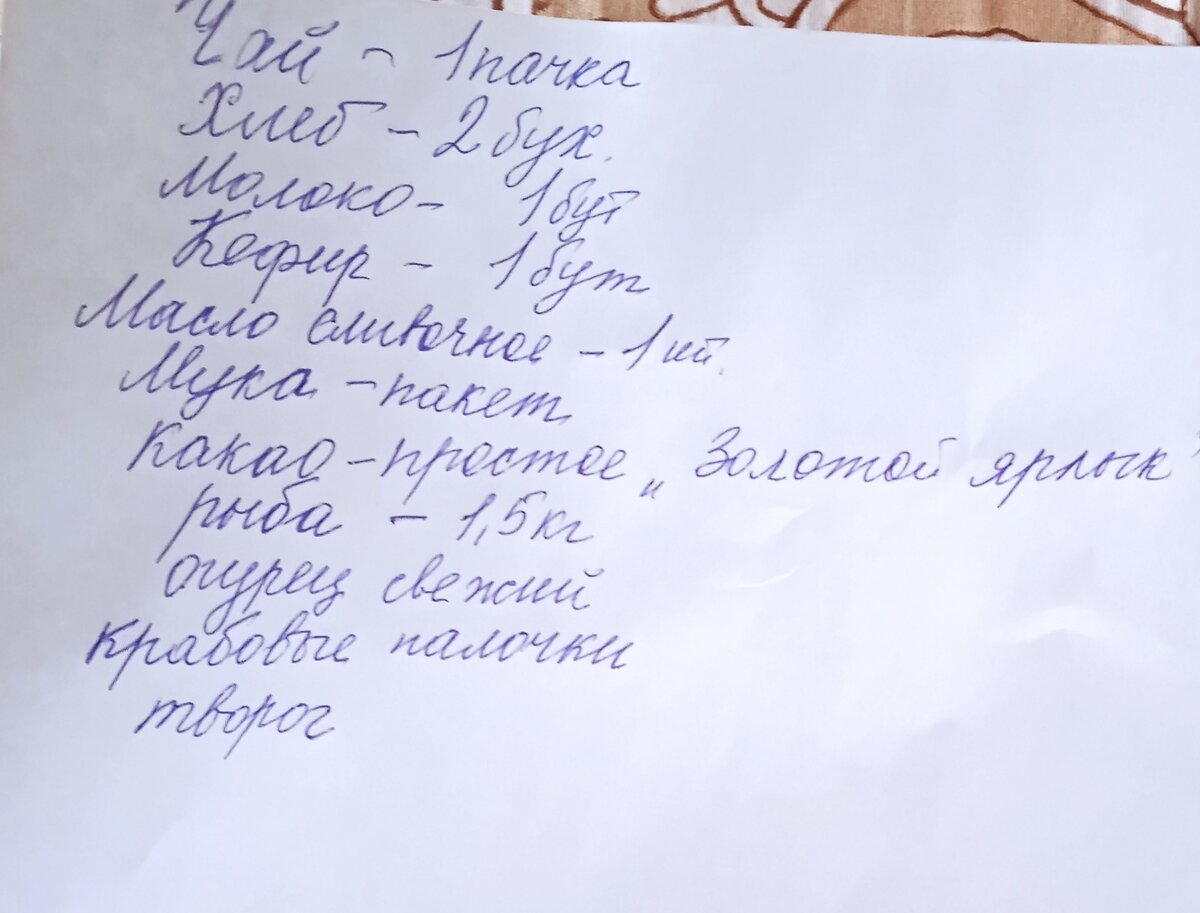 Чай - 1 пачка
Хлеб - 2 бух.
Молоко - 1 бут
Кефир - 1 бут
Масло сливочное - 1 шт.
Мука - пакет
Какао - простое „Золотой ярлык"
рыба - 1,5 кг
огурец свежий
крабовые палочки
творог